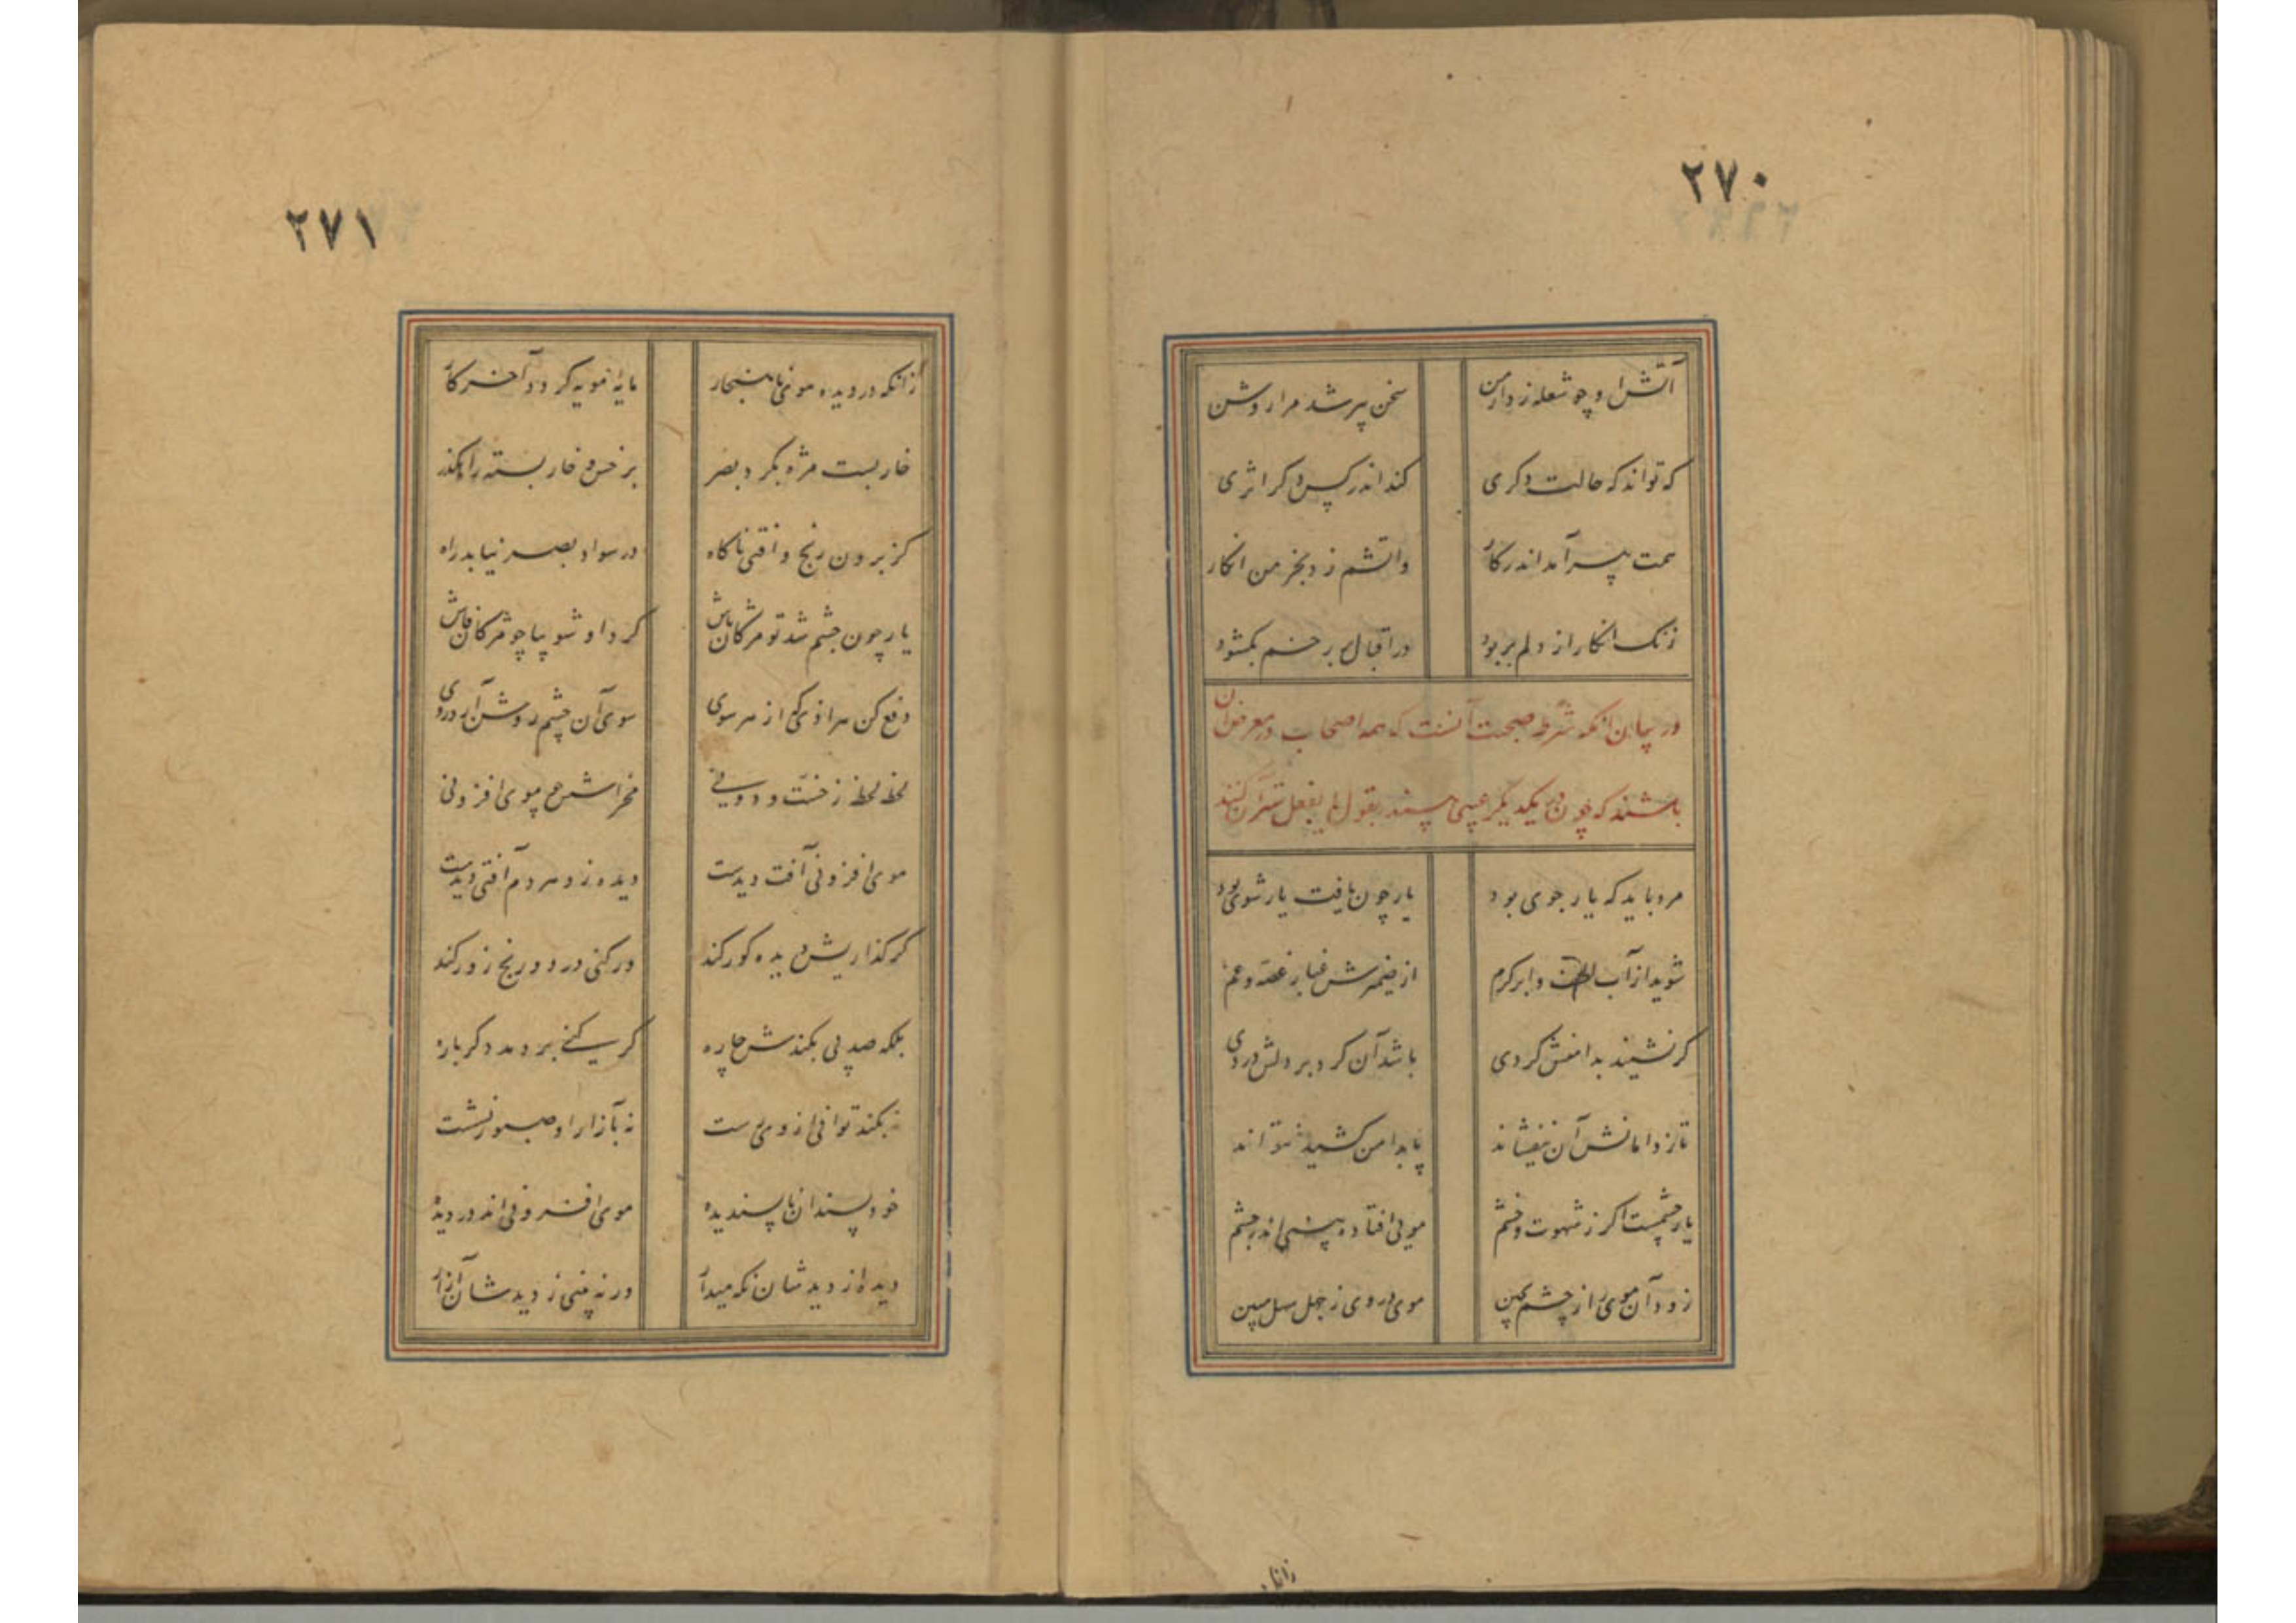 ۲۷۰
آتش او چو شعله زد در من سخن پیر شد مرا روشن
که تواند که حالت دکری کند اندر کس دکر اثری
همت پیر آمد اندر کار واتشم زد بخرمن انکار
زنک انکار از دلم بربود در اقبال بر رخم بکشود
در بیان آنکه شرط صحبت آنست که همه اصحاب در معرض آن
باشند که چون در یکدیگر عیبی بینند بقول یا بفعل تدارک آن کنند
مرد باید که یار جوی بود یار چون یافت یار شوی بود
شوید از آب لطف و ابر کرم از ضمیرش غبار غصه و غم
کر نشیند بدامنش کردی باشد آن کرد بر دلش دردی
تا ز دامانش آن نیفشاند پا بدامن کشید نتواند
یار چشمست اکر ز شهوت و خشم مویی افتاده بینی اندر چشم
زود آن موی را ز چشم بچین موی در وی ز جهل سهل مبین
زانکه
۲۷۱
زانکه در دیده موی ناهنجار مایه مویه کردد آخر کار
خار بست مژه بکرد بصر بر خس و خار بسته راهکذر
کز برون رنج و آفتی ناکاه در سواد بصر نیابد راه
یار چون چشم شد تو مژکان باش کرد او شو بپا چو مژکان فاش
دفع کن هر اذی که از هر سوی سوی آن چشم روشن آرد روی
لحظه لحظه ز خست و دونی مخراشش بموی افزونی
موی افزونی آفت دیدست دیده زو مردم آفتی دیدست
کر کذاریش دیده کور کند ور کنی درد و رنج زور کند
بلکه صد پی بکندنش چاره کر کنی بر دمد دکرباره
نه بکندن توانی از وی رست نه بآزار او صبور نشست
خودپسندان ناپسندیده موی افزونی اند در دیده
دیده از دیدشان نکه میدار ورنه بینی ز دیدشان آزار